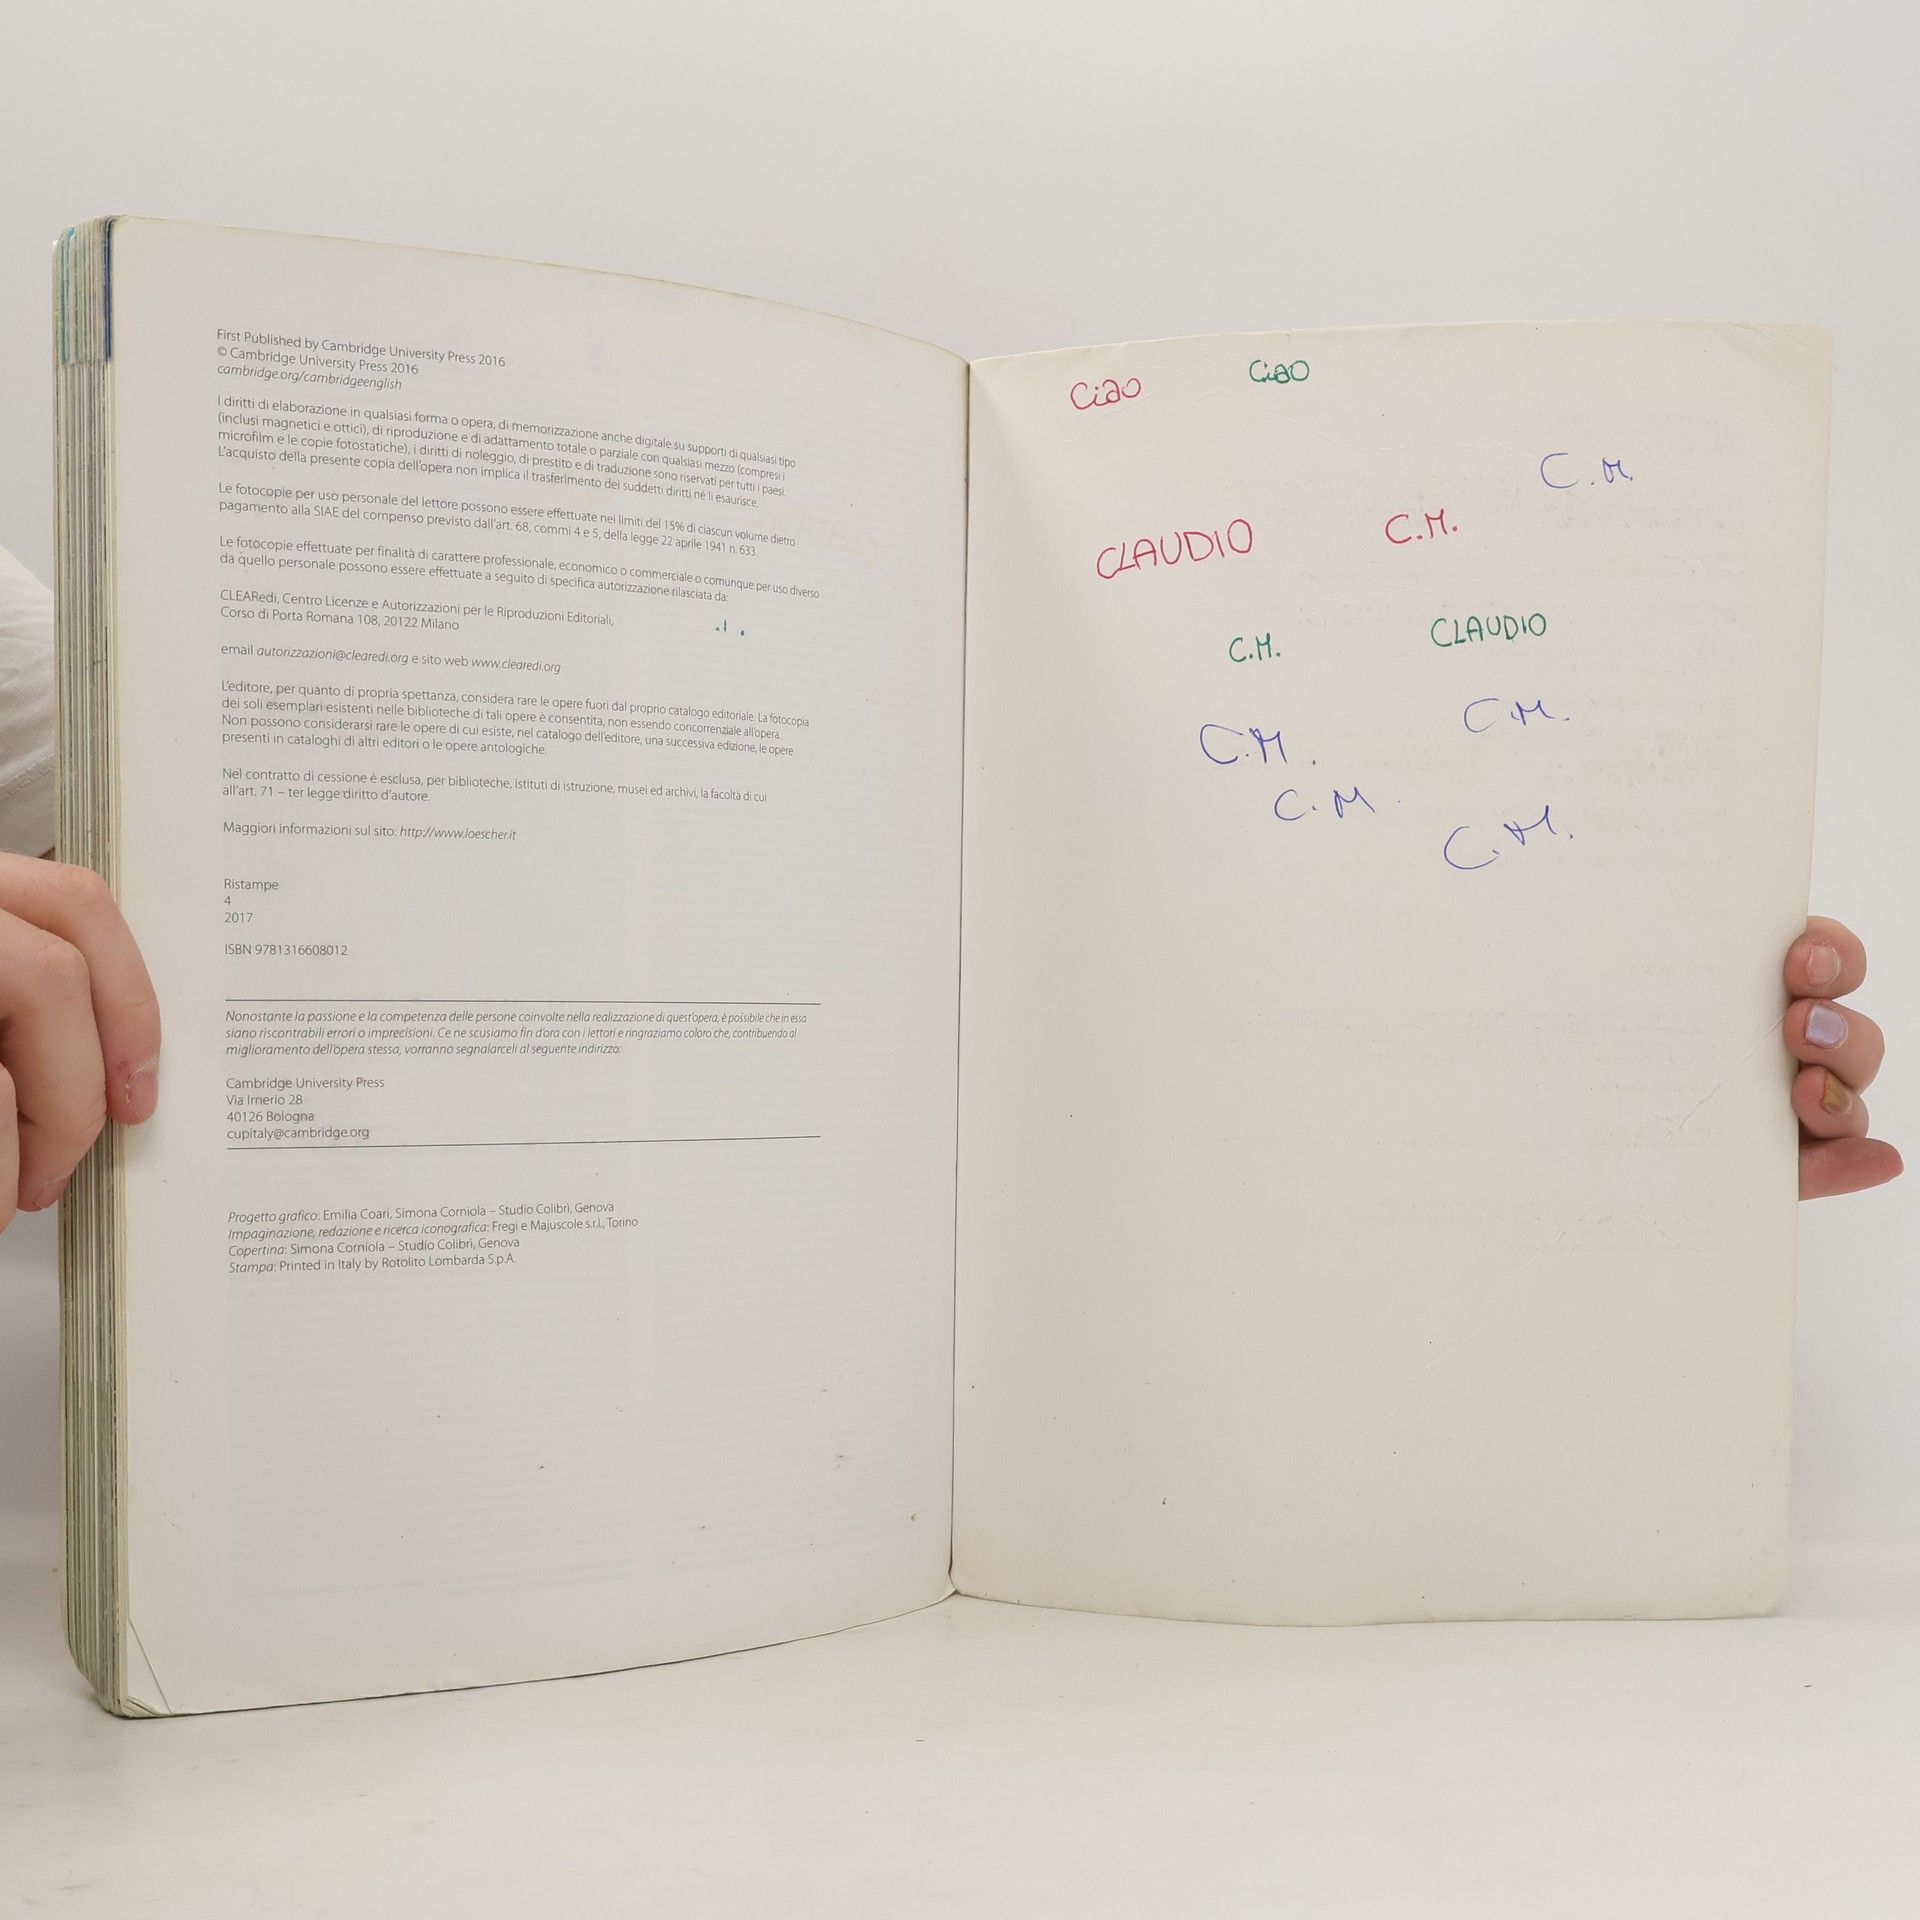 First Published by Cambridge University Press 2016
© Cambridge University Press 2016
cambridge.org/cambridgeenglish
I diritti di elaborazione in qualsiasi forma o opera, di memorizzazione anche digitale su supporti di qualsiasi tipo
(inclusi magnetici e ottici), di riproduzione e di adattamento totale o parziale con qualsiasi mezzo (compresi i
microfilm e le copie fotostatiche), i diritti di noleggio, di prestito e di traduzione sono riservati per tutti i paesi.
L'acquisto della presente copia dell'opera non implica il trasferimento dei suddetti diritti né li esaurisce.
Le fotocopie per uso personale del lettore possono essere effettuate nei limiti del 15% di ciascun volume dietro
pagamento alla SIAE del compenso previsto dall'art. 68, commi 4 e 5, della legge 22 aprile 1941 n. 633.
Le fotocopie effettuate per finalità di carattere professionale, economico o commerciale o comunque per uso diverso
da quello personale possono essere effettuate a seguito di specifica autorizzazione rilasciata da:
CLEARedi, Centro Licenze e Autorizzazioni per le Riproduzioni Editoriali,
Corso di Porta Romana 108, 20122 Milano
email autorizzazioni@clearedi.org e sito web www.clearedi.org
L'editore, per quanto di propria spettanza, considera rare le opere fuori dal proprio catalogo editoriale. La fotocopia
dei soli esemplari esistenti nelle biblioteche di tali opere è consentita, non essendo concorrenziale all'opera.
Non possono considerarsi rare le opere di cui esiste, nel catalogo dell'editore, una successiva edizione, le opere
presenti in cataloghi di altri editori o le opere antologiche.
Nel contratto di cessione è esclusa, per biblioteche, istituti di istruzione, musei ed archivi, la facoltà di cui
all'art. 71 – ter legge diritto d'autore.
Maggiori informazioni sul sito: http://www.loescher.it
Ristampe
4
2017
ISBN 9781316608012
Nonostante la passione e la competenza delle persone coinvolte nella realizzazione di quest'opera, è possibile che in essa
siano riscontrabili errori o imprecisioni. Ce ne scusiamo fin d'ora con i lettori e ringraziamo coloro che, contribuendo al
miglioramento dell'opera stessa, vorranno segnalarceli al seguente indirizzo:
Cambridge University Press
Via Irnerio 28
40126 Bologna
cupitaly@cambridge.org
Progetto grafico: Emilia Coari, Simona Corniola – Studio Colibrì, Genova
Impaginazione, redazione e ricerca iconografica: Fregi e Majuscole s.r.l., Torino
Copertina: Simona Corniola – Studio Colibrì, Genova
Stampa: Printed in Italy by Rotolito Lombarda S.p.A.
Ciao Ciao
C.M.
CLAUDIO C.M.
C.M. CLAUDIO
C.M. C.M.
C.M.
C.M.